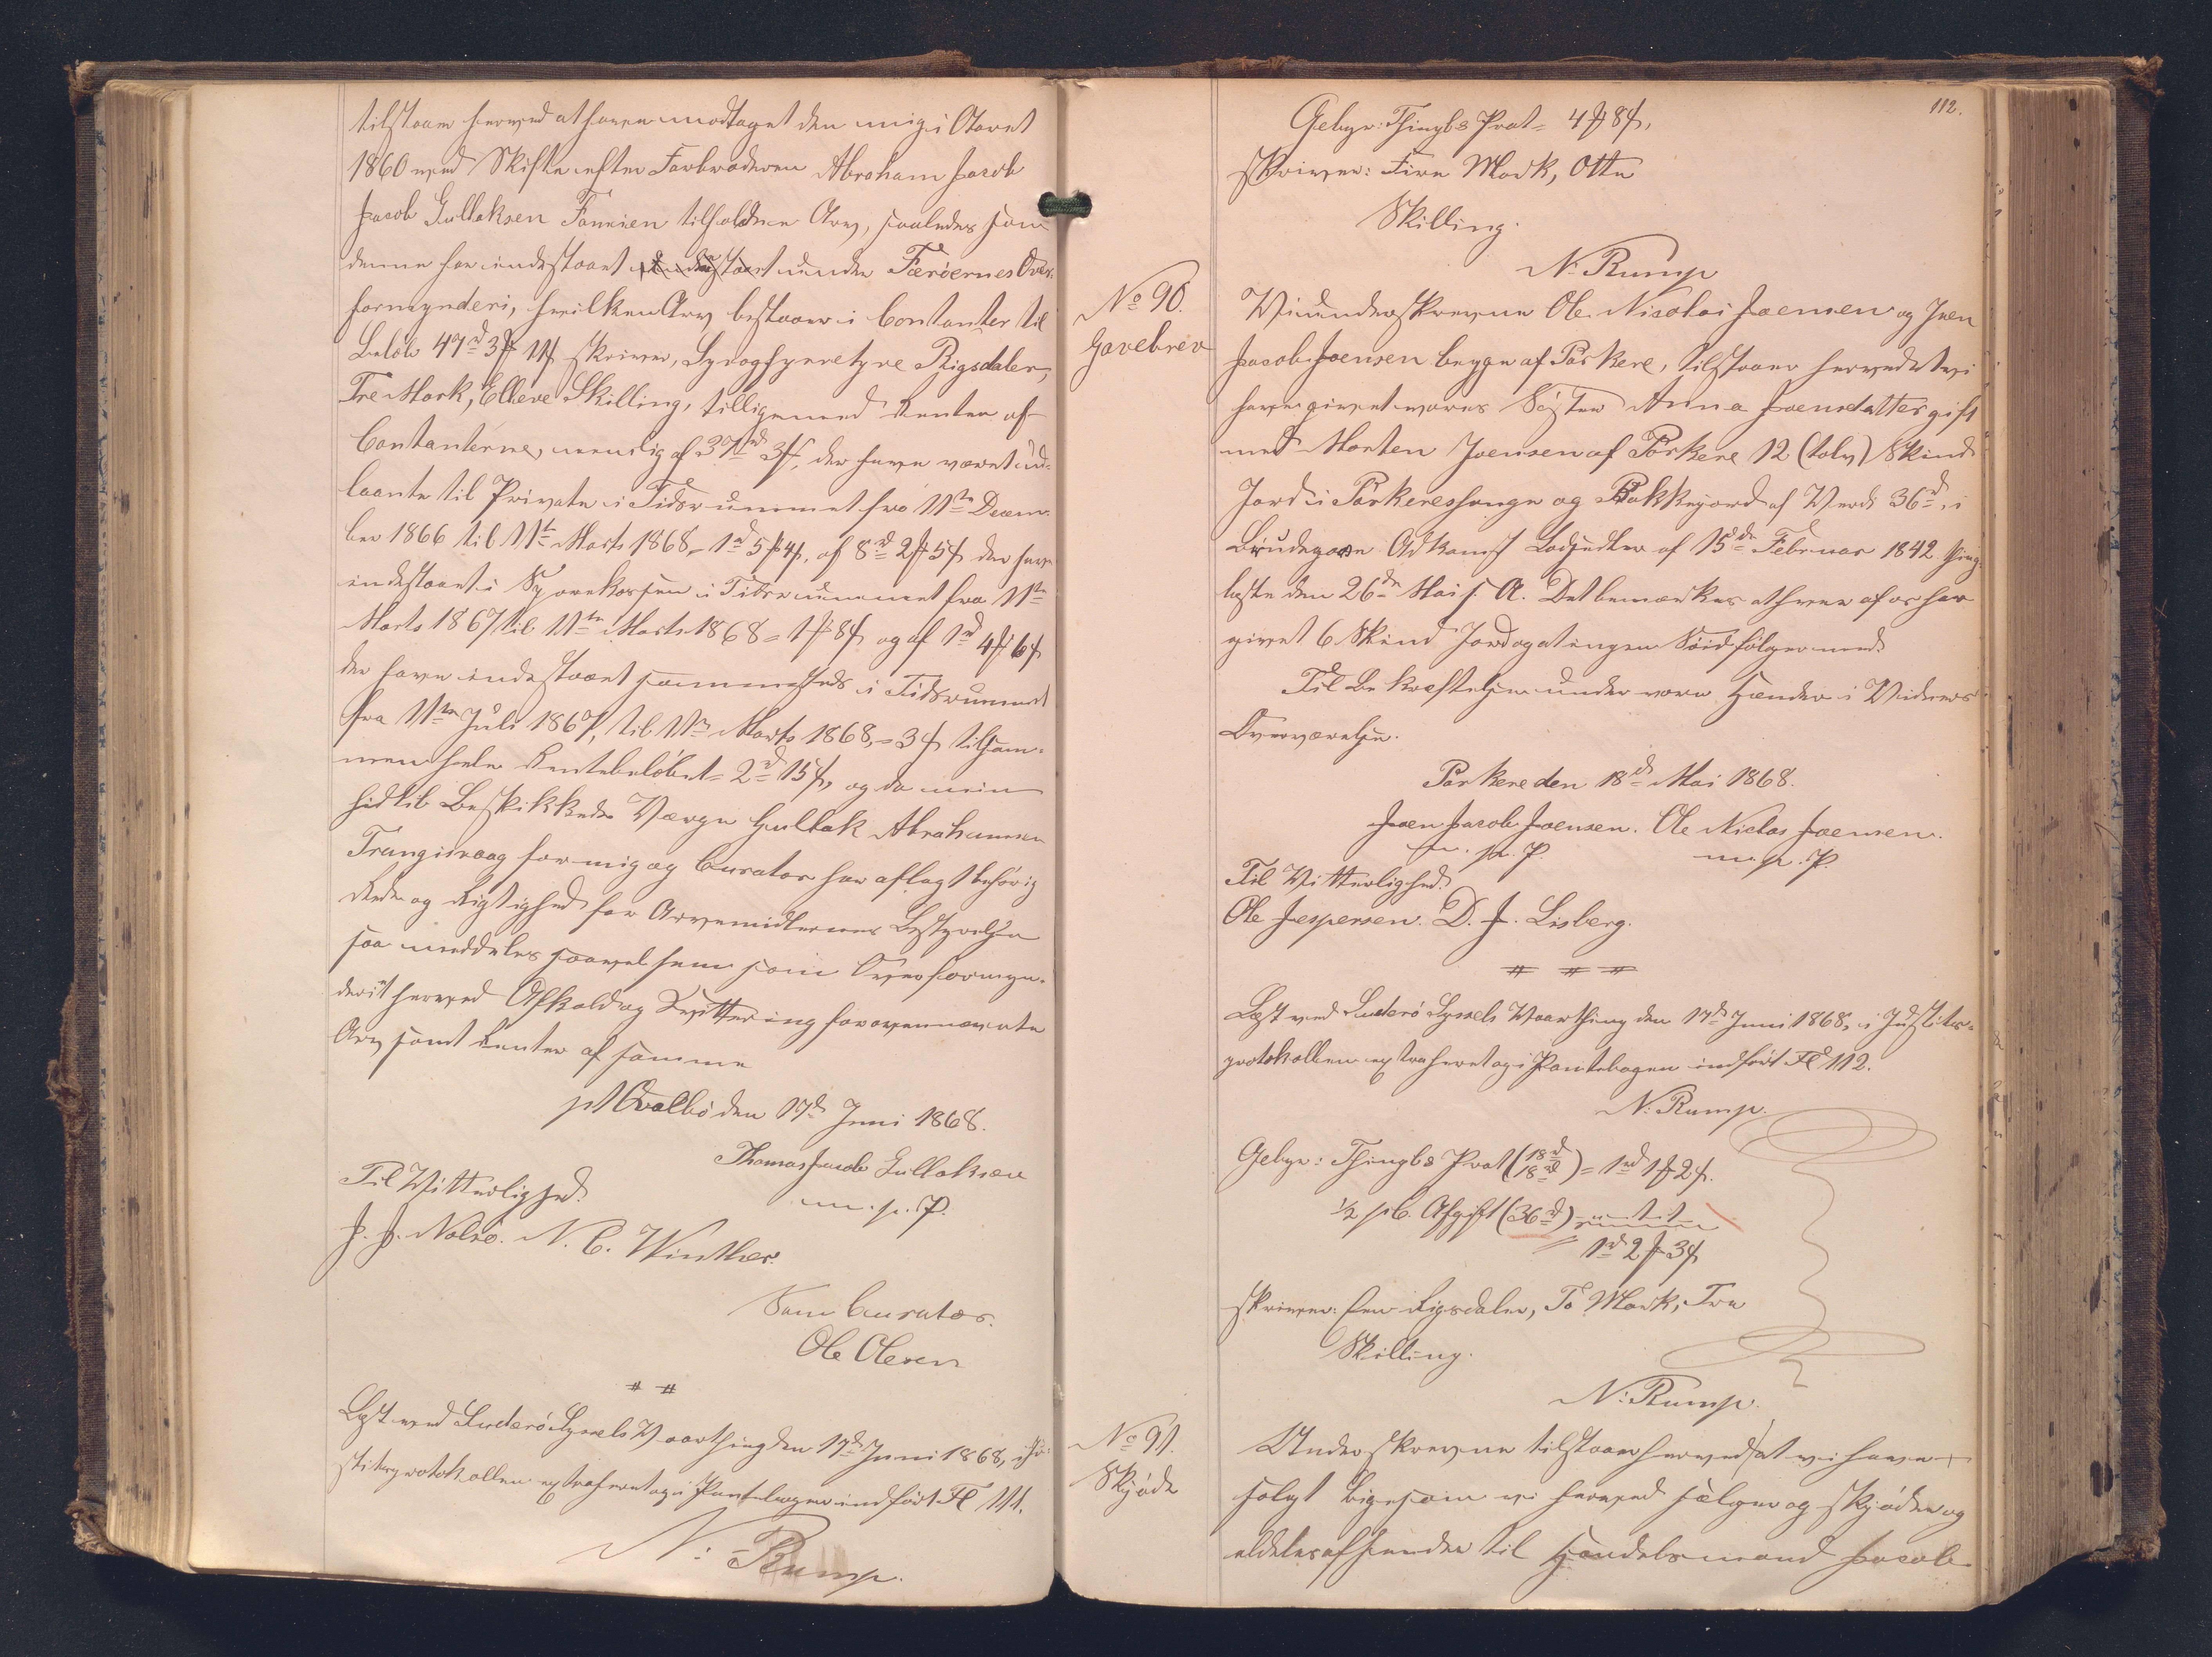 tilstaaer herved at have modtaget den mig i Aaret
1860 ved Skifte efter Farbroderen Abraham Jacob
Jacob Gullaksen Famien tilfaldne Arv, saaledes som
denne har indestaaet under Færöernes Over-
formynderi, hvilken Arv bestaaer i Contanter til
Belöb 47rd 3 ℔ 11 ß skriver, Syvogfyrretyve Rigsdaler,
Tre Mark, Elleve Skilling, tilligemed Renten af
Contanterne, nemlig af 37rd 3 ß, der have været ud-
laante til Private i Tidsrummet fra 11te Decem-
ber 1866 til 11te Marts 1868 = 1rd 5 ℔ 4 ß, af 8rd 2 ℔ 5 ß der have
indestaaet i Sparekassen i Tidsrummet fra 11te
Marts 1867 til 11te Marts 1868 = 1 ℔ 8 ß og af 1rd 4 ℔ 6 ß
der have indestaaet sammesteds i Tidsrummet
fra 11te Juli 1867, til 11te Marts 1868, = 3 ß tilsam-
men hele Rentebelöbet = 2rd 15 ß, og da min
hidtil Beskikkede Værge Gullak Abrahamsen
Trangisvaag for mig og Curator har aflagt behörig
Rede og Rigtighed for Arvemidlernes Bestyrelse
saa meddeles saavel ham som Overformyn-
deriet herved Afkald og Qvittering for ovennævnte
Arv samt Renter af samme
pt Qvalbö den 17de Juni 1868.
Thomas Jacob Gullaksen
m. p. P.
Til Vitterlighed.
J. J. Nolsö. N. C. Winther.
Som Curator.
Ole Olesen
# #
Læst ved Suderö Syssels Vaarthing den 17de Juni 1868, i Ju-
stitsprotokollen extraheret og i Pantebogen indfört Fl 111.
N: Rump.
112.
Gebyr: Thingls Prot = 4 ℔ 8 ß,
skriver: Fire Mark, Otte
Skilling.
N. Rump
No 90.
Gavebrev
Vi underskrevne Ole Nicolai Joensen og Joen
Jacob Joensen begge af Porkere, tilstaaer herved at vi
have givet vores Söster Anna Joensdatter gift
med Morten Joensen af Porkere 12 (tolv) Skind
Jord i Porkereshauge og Bakkejord af Værdi 36rd, i
Brudegave Adkomst Lodsedler af 15de Februar 1842 thing-
læste den 26de Mai s. A. Det bemærkes at hver af os har
givet 6 Skind Jord og at ingen Söid fölger med.
Til Bekræftelse under vore Hænder i Vidners
Overværelse.
Porkere den 18de Mai 1868.
Joen Jacob Joensen. Ole Niclas Joensen.
m. p. P. m. p. P.
Til Vitterlighed.
Ole Jespersen. D. J. Lisberg.
# # #
Læst ved Suderö Syssels Vaarthing den 17de Juni 1868, i Justits-
protokollen extraheret og i Pantebogen indfört Fl 112.
N: Rump.
Gebyr: Thingls Prot (18rd 18rd) = 1rd 1 ℔ 2 ß.
½ pC. Afgift (36rd)
1rd 2 ℔ 3 ß
skriver: Een Rigsdaler, To Mark, Tre
Skilling.
N: Rump.
No 91.
Skjöde
Underskrevne tilstaaer herved at vi have
solgt ligesom vi herved sælger og skjöder og
aldeles afhænder til Handelsmand Jacob